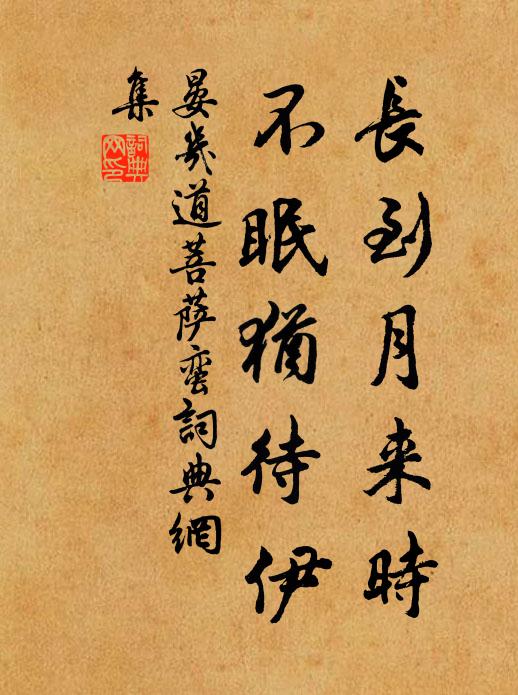 長到月来時
不眠猶待伊
晏幾道菩薩蠻詞典網
集
詞典
网印